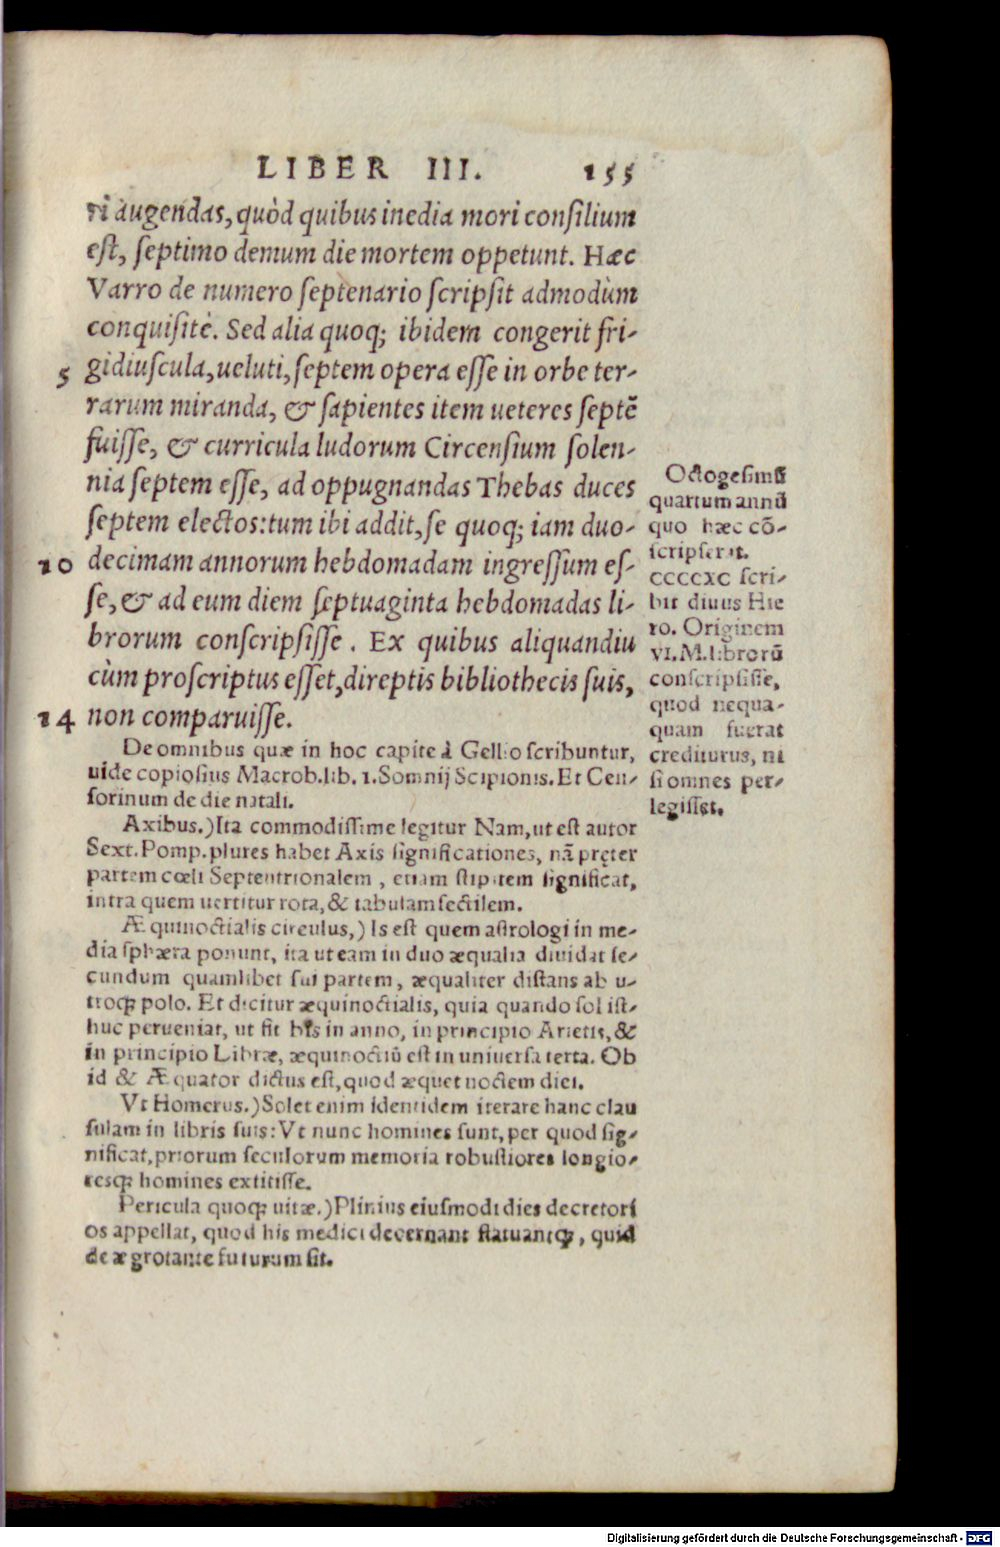 LIBER III. 155
ri augendas, quòd quibus inedia mori consilium
est, septimo demum die mortem oppetunt. Hæc
Varro de numero septenario scripsit admodùm
conquisitè. Sed alia quoq; ibidem congerit fri-
5 gidiuscula, ueluti, septem opera esse in orbe ter-
rarum miranda, & sapientes item ueteres septē
fuisse, & curricula ludorum Circensium solen-
nia septem esse, ad oppugnandas Thebas duces
septem electos: tum ibi addit, se quoq; iam duo-
10 decimam annorum hebdomadam ingressum es-
se, & ad eum diem septuaginta hebdomadas li-
brorum conscripsisse. Ex quibus aliquandiu
cùm proscriptus esset, direptis bibliothecis suis,
14 non comparuisse.
De omnibus quæ in hoc capite à Gellio scribuntur,
uide copiosius Macrob. lib. 1. Somnij Scipionis. Et Cen-
sorinum de die natali.
Axibus.) Ita commodissime legitur Nam, ut est autor
Sext. Pomp. plures habet Axis significationes, nā pręter
partem cœli Septentrionalem, etiam stipitem significat,
intra quem uertitur rota, & tabulam sectilem.
Æquinoctialis circulus,) Is est quem astrologi in me-
dia sphæra ponunt, ita ut eam in duo æqualia diuidat se-
cundum quamlibet sui partem, æqualiter distans ab u-
troq; polo. Et dicitur æquinoctialis, quia quando sol ist-
huc perueniat, ut fit bis in anno, in principio Arietis, &
in principio Libræ, æquinoctiū est in uniuersa terra. Ob
id & Æquator dictus est, quod æquet noctem diei.
Vt Homerus.) Solet enim identidem iterare hanc clau
sulam in libris suis: Vt nunc homines sunt, per quod sig-
nificat, priorum seculorum memoria robustiores longio-
resq; homines extitisse.
Pericula quoq; uitæ.) Plinius eiusmodi dies decretori
os appellat, quod his medici decernant statuantq;, quid
de ægrotante futurum sit.
Octogesimū
quartum annū
quo hæc cō-
scripserat.
CCCCXC scri-
bit diuus Hie
ro. Originem
VI. M. librorū
conscripsisse,
quod nequa-
quam fuerat
crediturus, ni
si omnes per-
legisset.
Digitalisierung gefördert durch die Deutsche Forschungsgemeinschaft - DFG